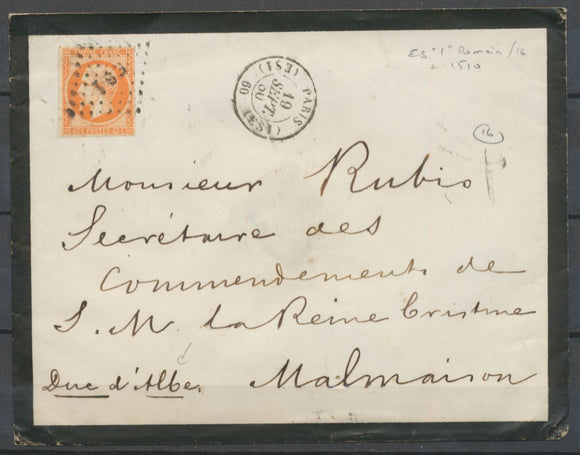 Es "1" Romain /16
+ 1510
PARIS (ES1)
19
SEPT.
60
60
16
Monsieur Rubio
Secrétaire des
Commendements de
S. M. la Reine Cristine
Duc d'Albe, Malmaison